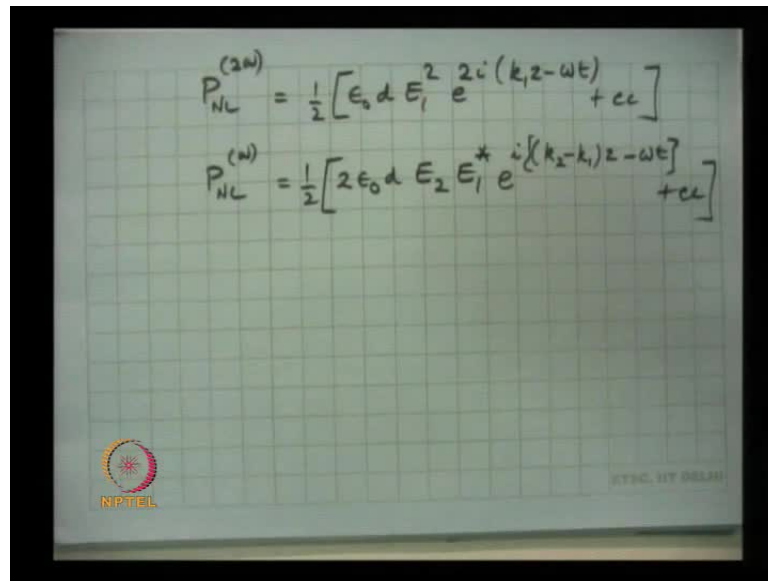 P_{NL}^{(2ω)} = \frac{1}{2} [ϵ_0 d E_1^2 e^{2i(k_1 z - ωt)} + cc]
P_{NL}^{(ω)} = \frac{1}{2} [2 ϵ_0 d E_2 E_1^* e^{i{(k_2 - k_1)z - ωt}} + cc]
NPTEL
ETSC, IIT DELHI